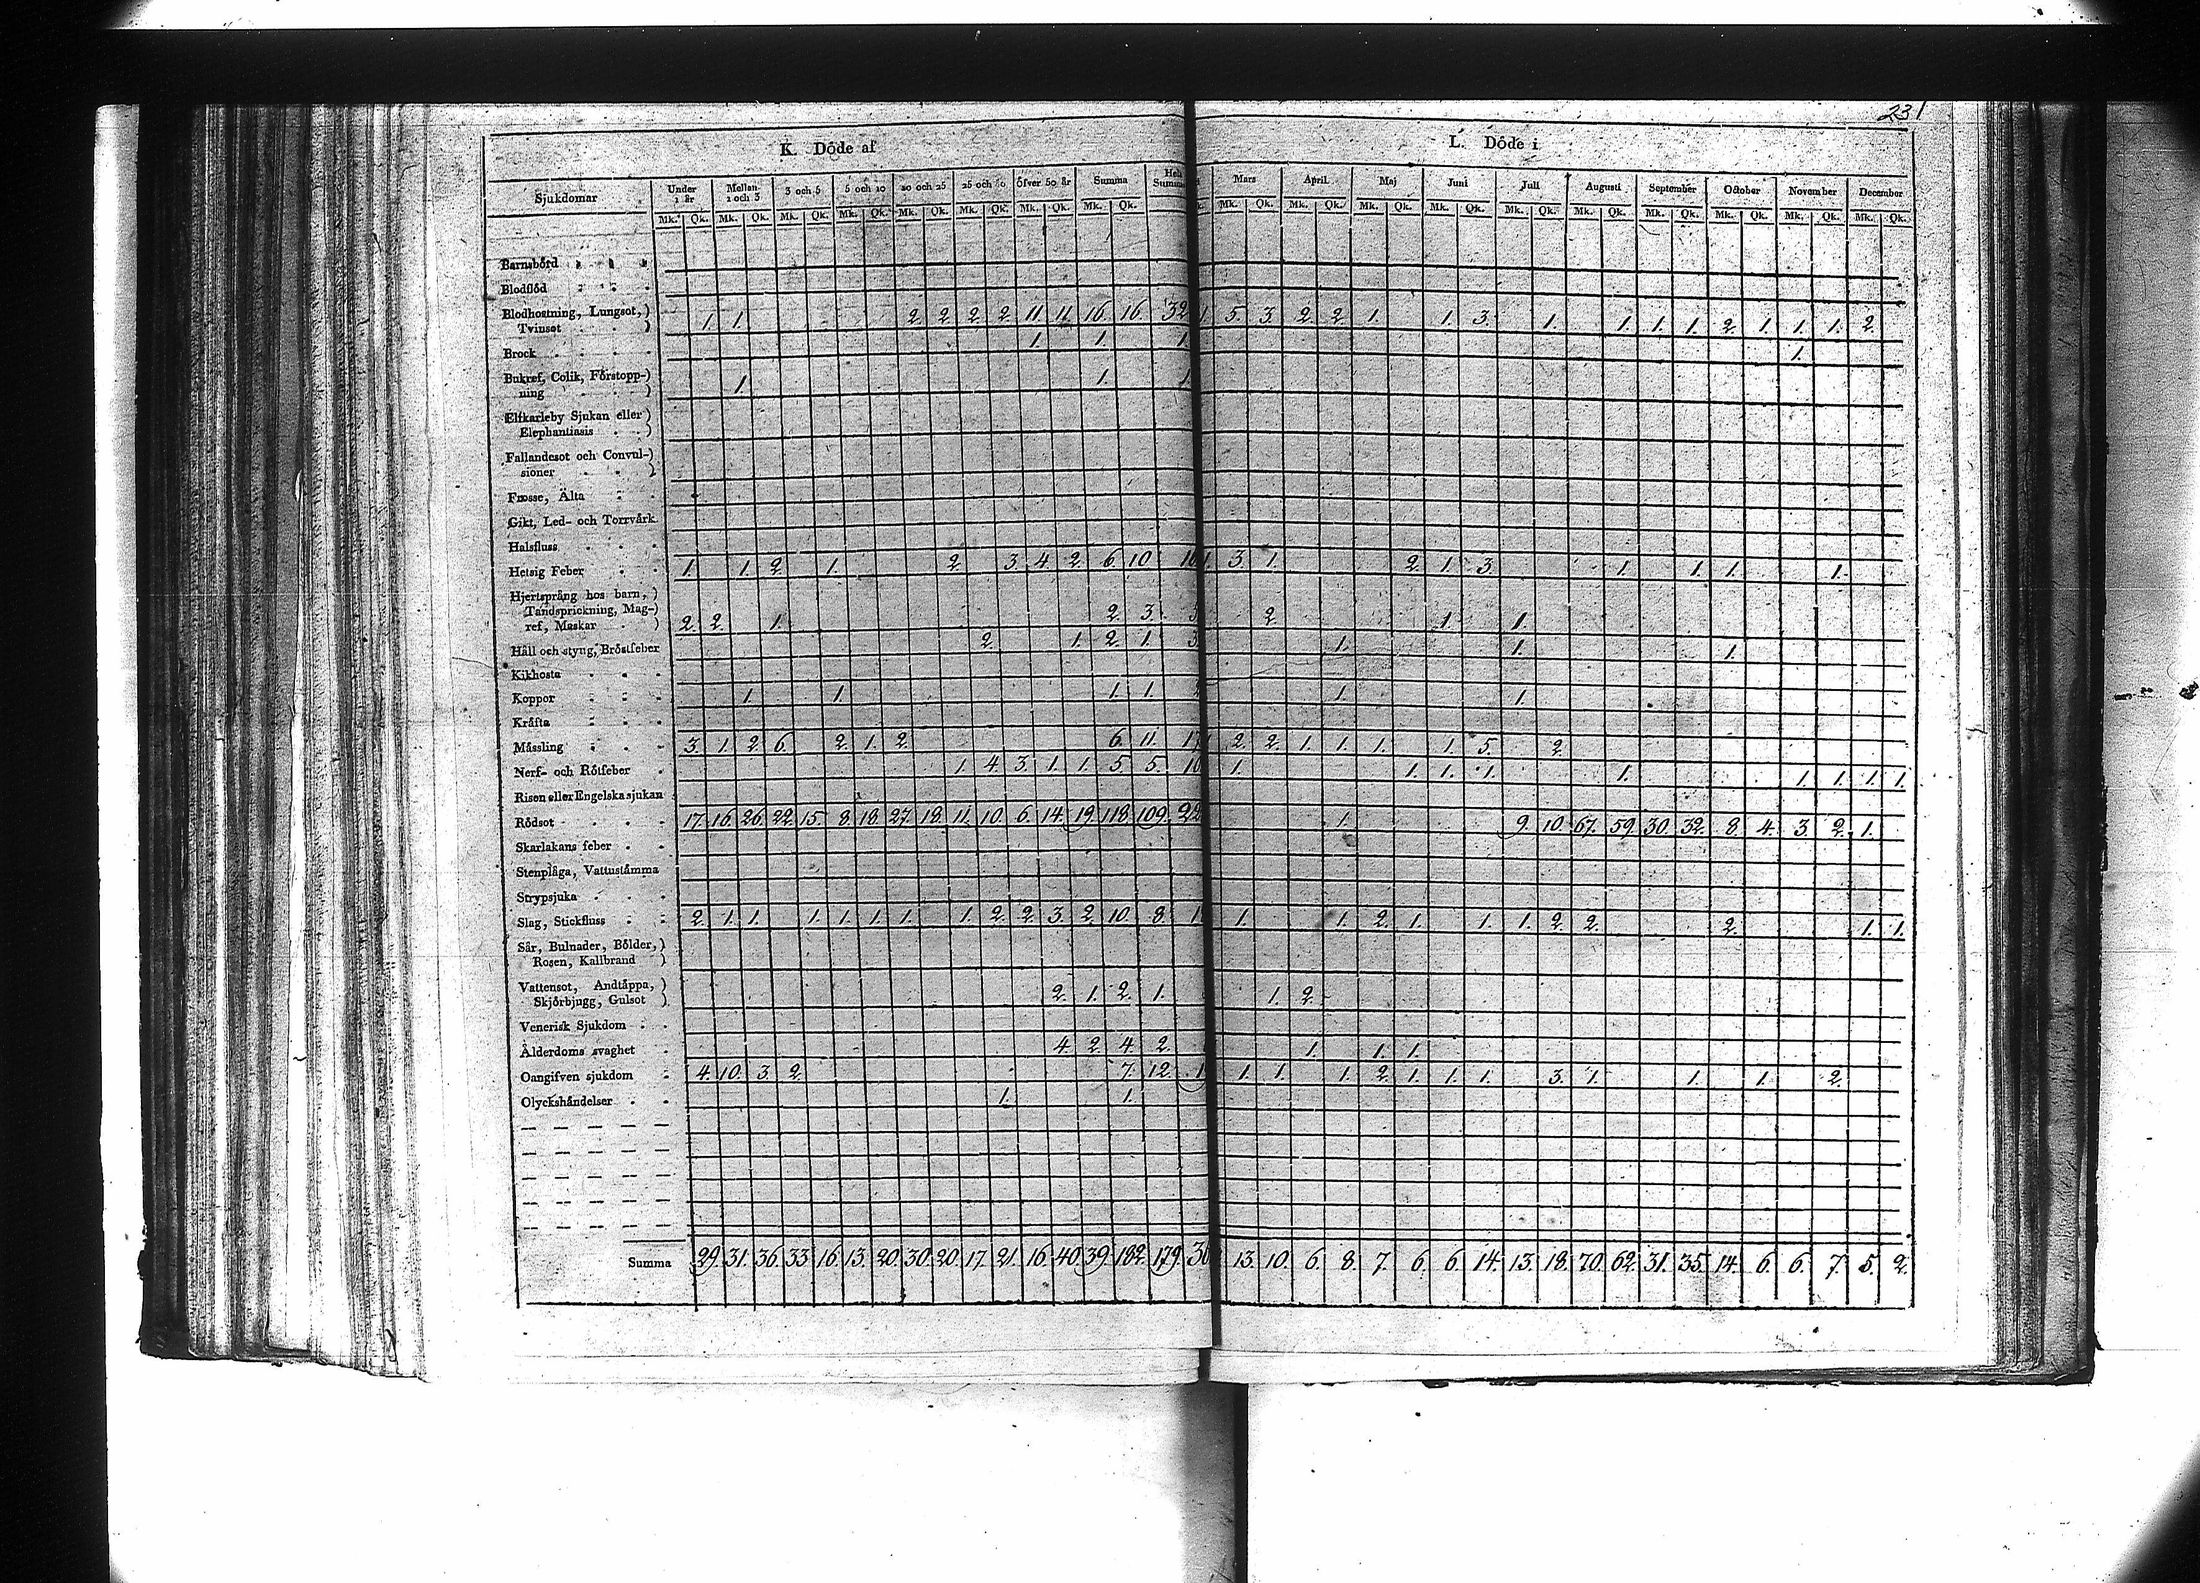 231
K. Döde af L. Döde i
Sjukdomar Under 1 år Mellan 1 och 3 3 och 5 5 och 10 10 och 25 25 och 50 öfver 50 år Summa Hela Summan Mars April Maj Juni Juli Augusti September October November December
Mk. Qk. Mk. Qk. Mk. Qk. Mk. Qk. Mk. Qk. Mk. Qk. Mk. Qk. Mk. Qk. Mk. Qk. Mk. Qk. Mk. Qk. Mk. Qk. Mk. Qk. Mk. Qk. Mk. Qk. Mk. Qk. Mk. Qk. Mk. Qk.
Barnsbörd
Blodflöd
Blodhostning, Lungsot,)
Tvinsot ) 1. 1. 2. 2. 2. 2. 11. 11. 16. 16. 32 1 5. 3. 2. 2. 1. 1. 3. 1. 1. 1. 1. 2. 1. 1. 1. 2.
Brock 1. 1. 1. 1.
Bukref, Colik, Förstopp-)
ning ) 1. 1. 1.
Elfkarleby Sjukan eller)
Elephantiasis )
Fallandesot och Convul-)
sioner )
Frosse, Älta
Gikt, Led- och Torrvärk
Halsfluss
Hetsig Feber 1. 1. 2. 1. 2. 3. 4. 2. 6. 10. 16 1 3. 1. 2. 1. 3. 1. 1. 1. 1.
Hjertsprång hos barn,)
Tandsprickning, Mag-)
ref, Maskar ) 2. 2. 1. 2. 3. 5 2. 1. 1.
Håll och styng, Bröstfeber 2. 1. 2. 1. 3. 1. 1. 1.
Kikhosta
Koppor 1. 1. 1. 1. 2 1. 1.
Kräfta
Mässling 3. 1. 2. 6. 2. 1. 2. 6. 11. 17 2. 2. 1. 1. 1. 1. 5. 2.
Nerf- och Rötfeber 1. 4. 3. 1. 1. 5. 5. 10 1. 1. 1. 1. 1. 1. 1. 1. 1.
Risen eller Engelska sjukan
Rödsot 17. 16. 26. 22. 15. 8. 18. 27. 18. 11. 10. 6. 14. 19. 118. 109. 22 1. 9. 10. 67. 59. 30. 32. 8. 4. 3. 2. 1.
Skarlakans feber
Stenplåga, Vattustämma
Strypsjuka
Slag, Stickfluss 2. 1. 1. 1. 1. 1. 1. 1. 2. 2. 3. 2. 10. 8. 1 1. 1. 2. 1. 1. 1. 2. 2. 2. 1. 1.
Sår, Bulnader, Bölder,)
Rosen, Kallbrand )
Vattensot, Andtäppa,)
Skjörbjugg, Gulsot ) 2. 1. 2. 1. 1. 2.
Venerisk Sjukdom
Ålderdoms svaghet 4. 2. 4. 2. 1. 1. 1.
Oangifven sjukdom 4. 10. 3. 2. 7. 12. 1 1. 1. 1. 2. 1. 1. 1. 3. 1. 1. 1. 2.
Olyckshändelser 1. 1.
Summa 29. 31. 36. 33. 16. 13. 20. 30. 20. 17. 21. 16. 40. 39. 182. 179. 36 13. 10. 6. 8. 7. 6. 6. 14. 13. 18. 70. 62. 31. 35. 14. 6. 6. 7. 5. 2.